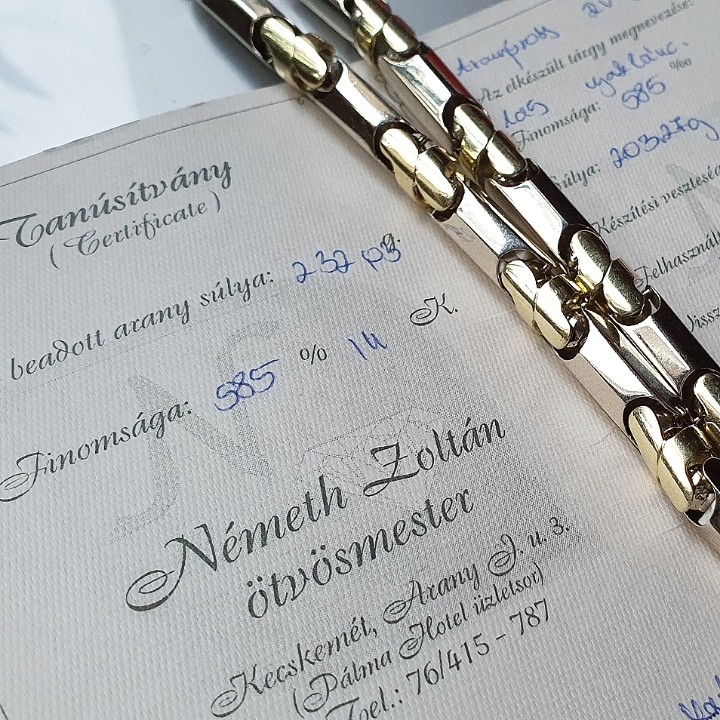 Tanúsítvány
(Certificate)
beadott arany súlya: 232 g.
Finomsága: 585 % 14 K.
Németh Zoltán
ötvösmester
Kecskemét, Arany J. u. 3.
(Pálma Hotel üzletsor)
Tel.: 76/415 - 787
Az elkészült tárgy megnevezése:
nyaklánc.
Finomsága: 585 ‰
súlya: 203,27g
Készítési veszteség
Felhasznál
Vissz